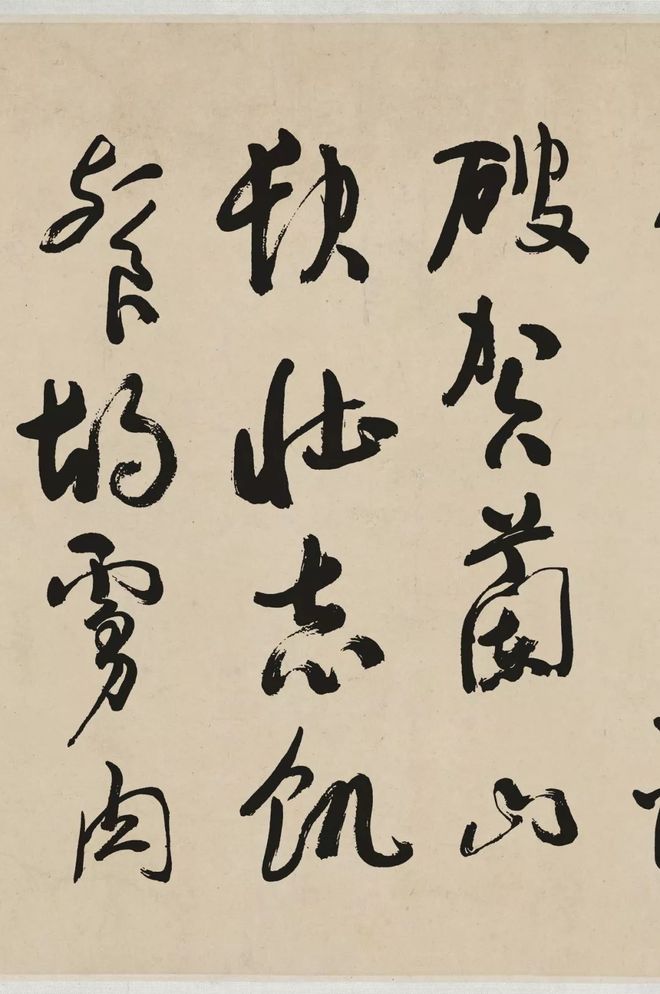 破賀蘭山
缺壯志飢
餐胡虜肉